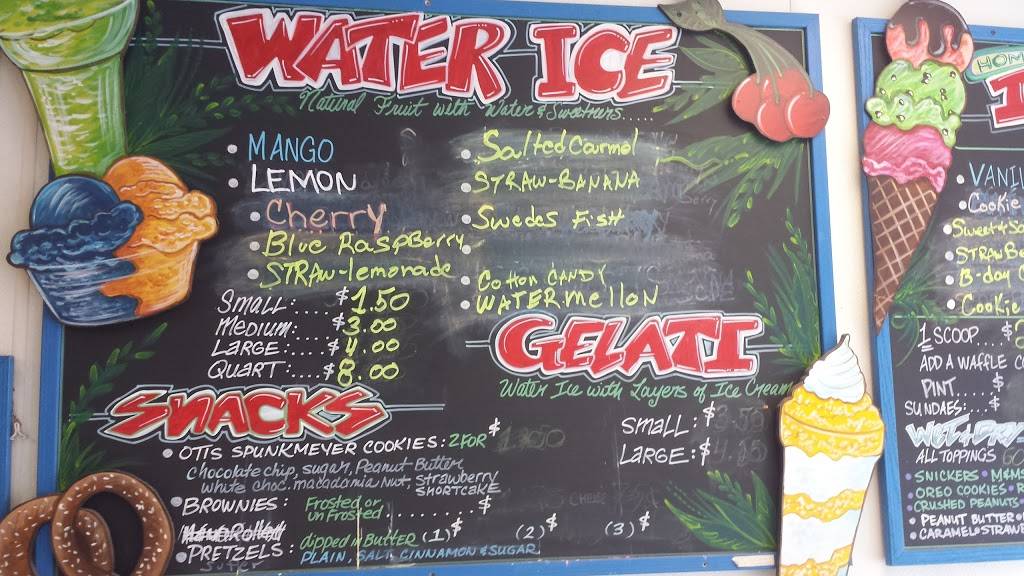 WATER ICE
Natural Fruit with Water & Sweetners.....
• MANGO
• LEMON
• Cherry
• Blue RaspBerry
• STRAW-lemonade
• Salted Carmel
• STRAW-BANANA
• Swedes Fish
• Cotton CANDY
• WATERmellON
SMALL:.....$1.50
MEDIUM:....$3.00
LARGE:.....$4.00
QUART:.....$8.00
GELATI
Water Ice with Layers of Ice Cream
SMALL:$
LARGE:$
SNACKS
• OTIS SPUNKMEYER COOKIES: 2 FOR $
chocolate chip, sugar, Peanut Butter
white choc. macadamia Nut, strawberry SHORTCAKE
• BROWNIES: Frosted or unFrosted..........$
PRETZELS: dipped in Butter (1)$ (2)$ (3)$
PLAIN, SALT, CINNAMON & SUGAR
HOM
I
• VANIL
• Cookie
• Sweet & Sa
• STRAWBe
• B-day C
• Cookie
1 SCOOP.. $
ADD A WAFFLE CO
PINT.... $
SUNDAES:.... $
WET & DRY
ALL TOPPINGS
• SNICKERS • M&M
• OREO COOKIES • R
• CRUSHED PEANUTS
• PEANUT BUTTER
• CARAMEL • STRAW